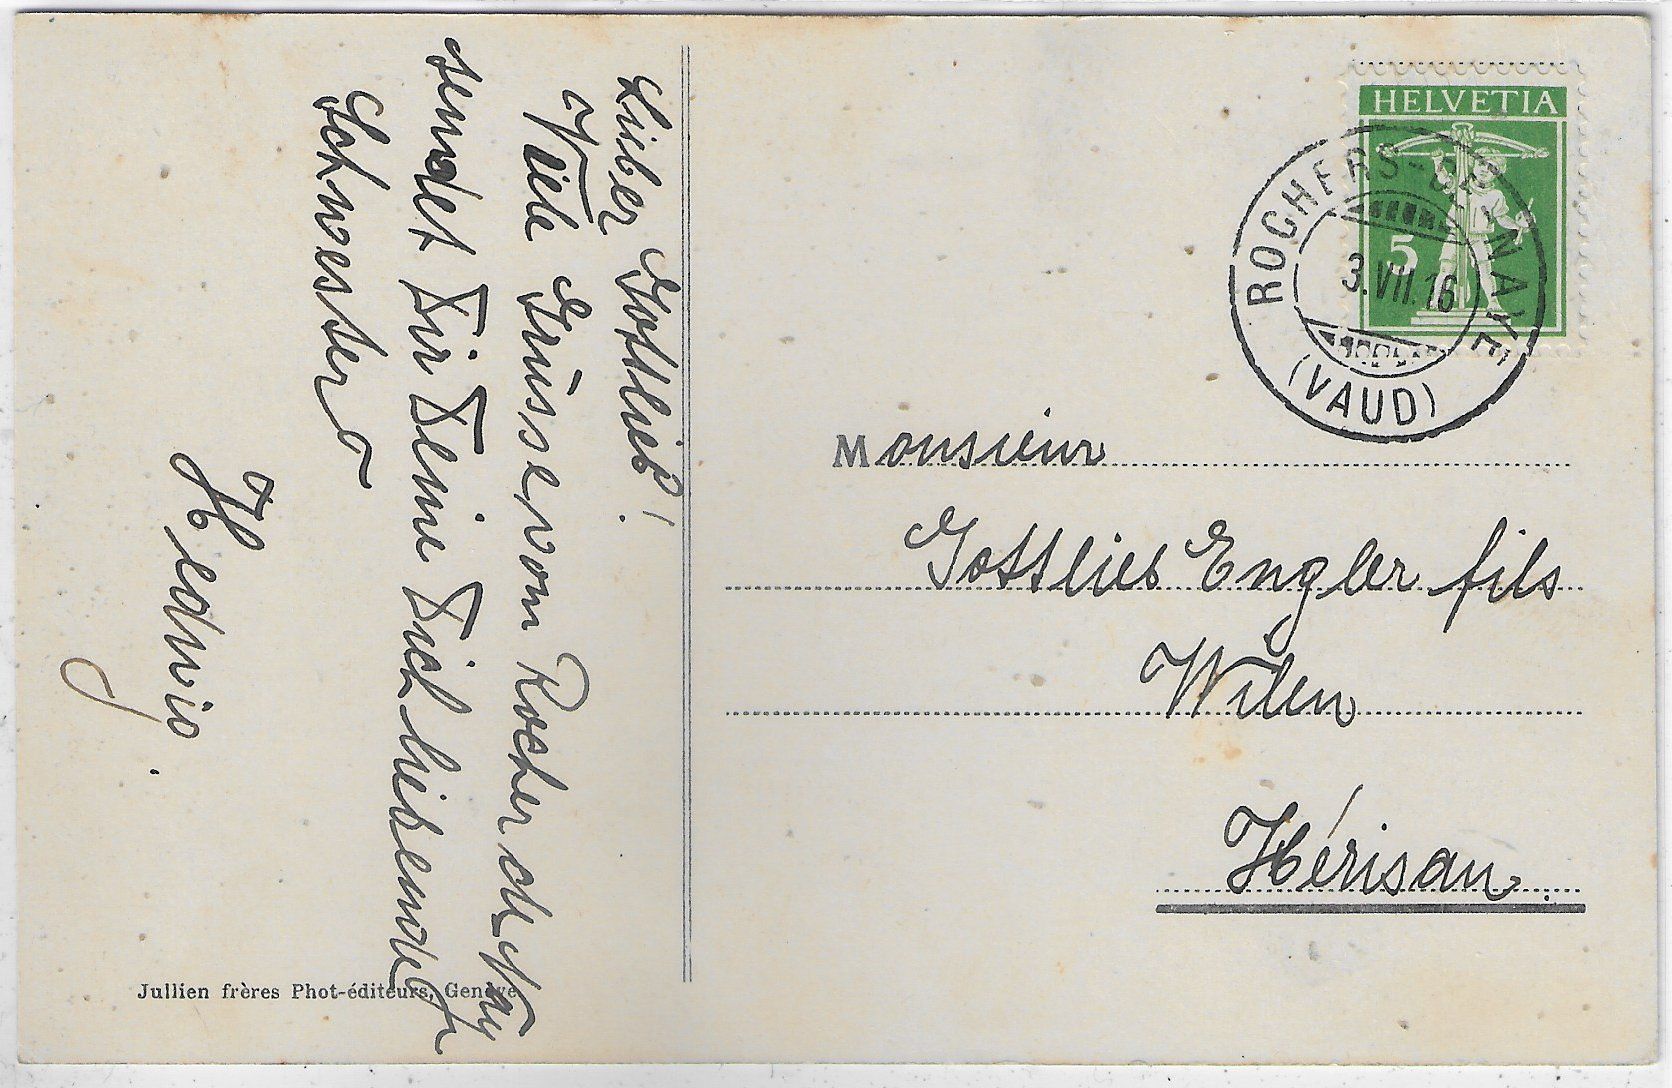 Lieber Gottlieb!
Viele Grüsse vom Rocher de Nay
sendet Dir Deine Dich liebende
Schwester
Hedwig.
HELVETIA
5
ROCHERS-DE-NAYE
3.VII.16
(VAUD)
Monsieur
Gottlieb Engler fils
Wilen
Hérisau.
Jullien frères Phot-éditeurs, Genève